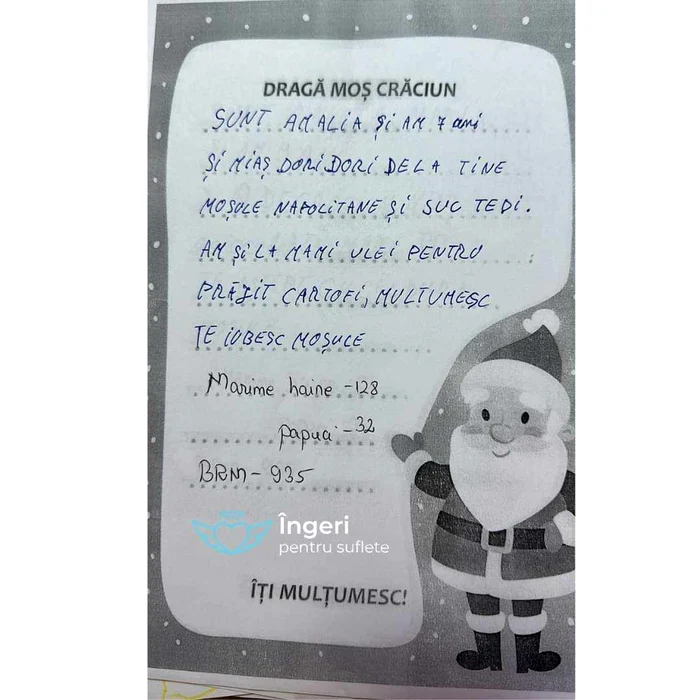 DRAGĂ MOȘ CRĂCIUN
SUNT AMALIA ȘI AM 7 ani
ȘI MIAȘ DORI DORI DE LA TINE
MOȘULE NAPOLITANE ȘI SUC TEDI.
AM ȘI LA MAMI ULEI PENTRU
PRĂJIT CARTOFI, MULTUMESC
TE IUBESC MOȘULE
Marime haine - 128
papuci - 32
BRM - 935
Îngeri
pentru suflete
ÎȚI MULȚUMESC!